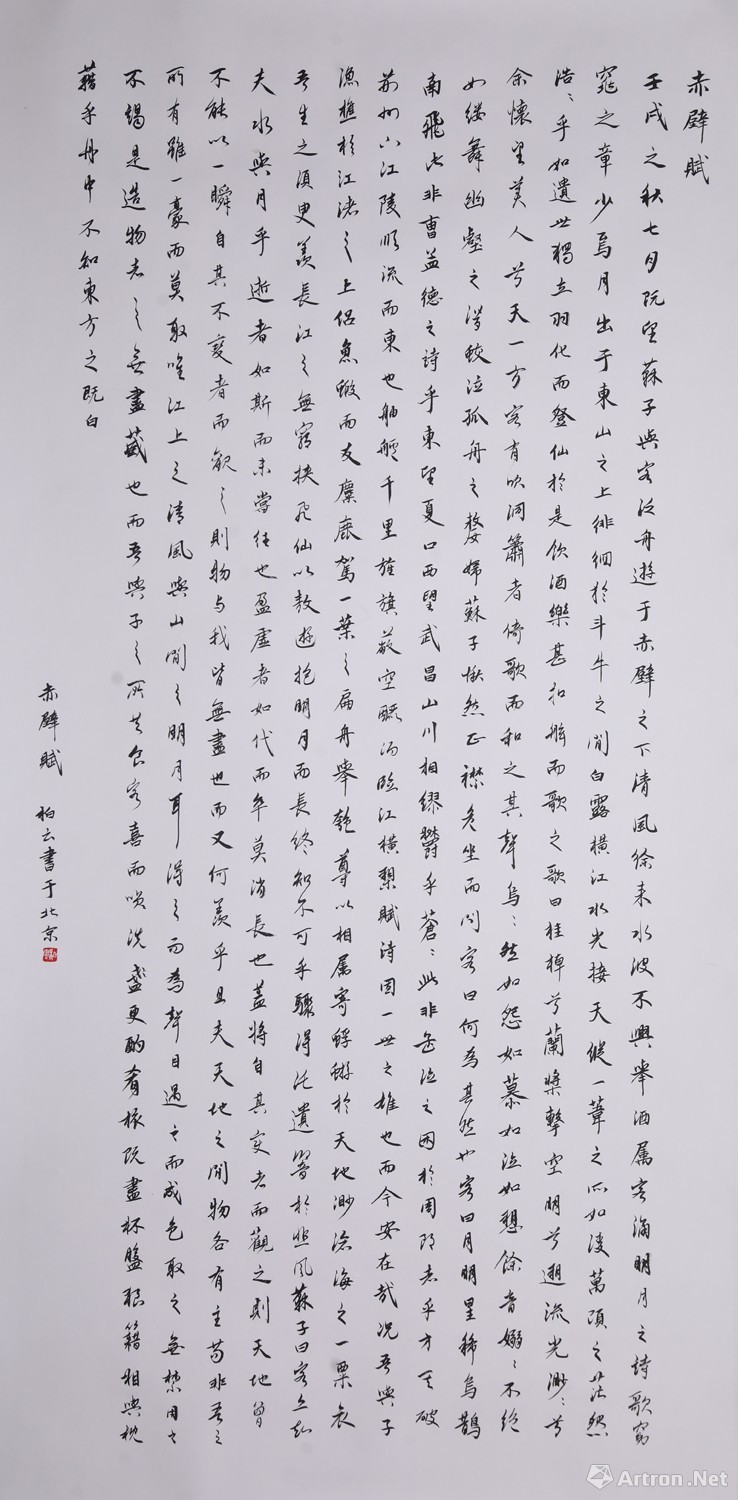 赤壁賦
壬戌之秋七月既望蘇子與客泛舟遊于赤壁之下清風徐来水波不興舉酒属客誦明月之詩歌窈
窕之章少焉月出于東山之上徘徊於斗牛之間白露橫江水光接天縱一葦之所如凌萬頃之茫然
浩:乎如遺世獨立羽化而登仙於是飲酒樂甚扣舷而歌之歌曰桂棹兮蘭槳擊空明兮遡流光渺:兮
余懷望美人兮天一方客有吹洞簫者倚歌而和之其聲烏:然如怨如慕如泣如愬餘音嫋:不絕
如縷舞幽壑之潛蛟泣孤舟之嫠婦蘇子愀然正襟危坐而問客曰何為其然也客曰月明星稀烏鵲
南飛此非曹孟德之詩乎東望夏口西望武昌山川相繆鬱乎蒼:此非孟德之困於周郎者乎方其破
荊州下江陵順流而東也舳艫千里旌旗蔽空釃酒臨江橫槊賦詩固一世之雄也而今安在哉况吾與子
漁樵於江渚之上侶魚蝦而友麋鹿駕一葉之扁舟舉匏尊以相属寄蜉蝣於天地渺滄海之一粟哀
吾生之須臾羨長江之無窮挾飛仙以敖遊抱明月而長終知不可乎驟得託遺響於悲風蘇子曰客亦知
夫水與月乎逝者如斯而未嘗往也盈虛者如代而卒莫消長也蓋將自其変者而觀之則天地曾
不能以一瞬自其不變者而觀之則物与我皆無盡也而又何羨乎且夫天地之間物各有主苟非吾之
所有雖一豪而莫取唯江上之清風與山間之明月耳得之而為聲目遇之而成色取之無禁用之
不竭是造物者之無盡藏也而吾與子之所共食客喜而笑洗盞更酌肴核既盡杯盤狼籍相與枕
藉乎舟中不知東方之既白
赤壁賦 柏云書于北京
Artron.Net